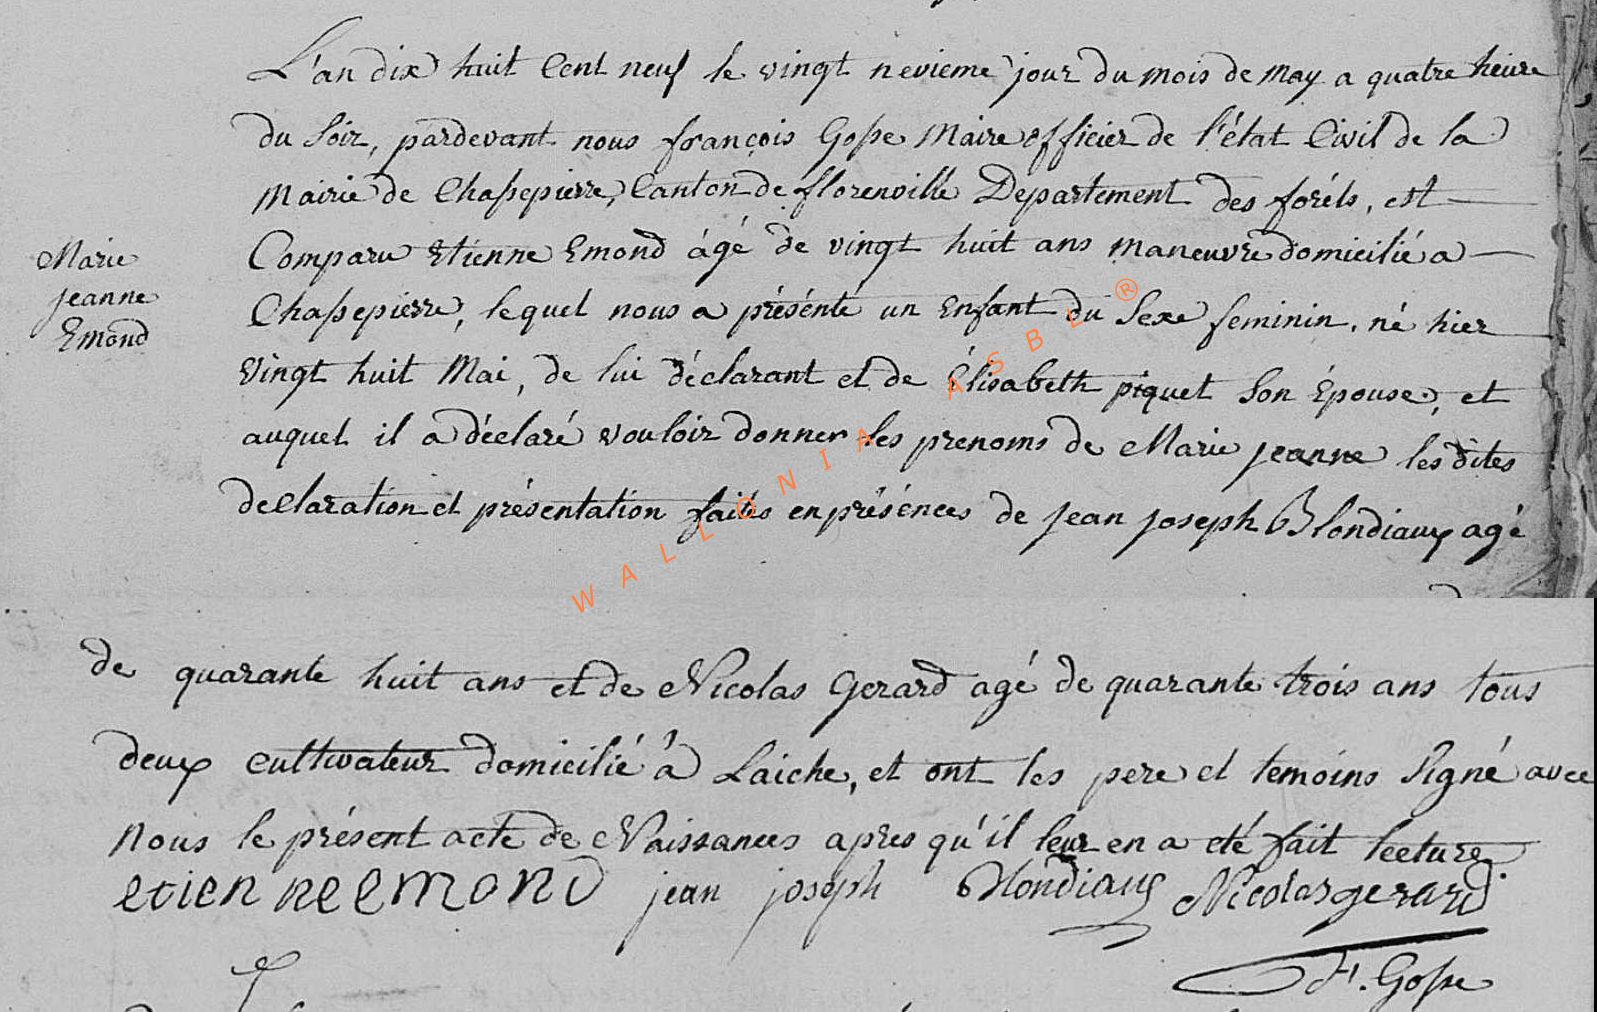 L'an dix huit Cent neuf le vingt nevieme jour du mois de may a quatre heure
du Soir, pardevant nous françois Gosse Maire officier de l'état Civil de la
Mairie de Chassepierre, Canton de florenville Departement des foréts, est
Marie
Jeanne
Emond
Comparu Etienne Emond ágé de vingt huit ans maneuvre domicilié a
Chassepierre, lequel nous a présénté un Enfant du Sexe feminin, né hier
vingt huit Mai, de lui déclarant et de Élisabeth piquet Son Épouse, et
auquel il a déclaré vouloir donner les prenoms de Marie jeanne les dites
declaration et présentation faits en présénces de jean joseph Blondiaux agé
WALLONIA ASBL ®
de quarante huit ans et de Nicolas Gerard agé de quarante trois ans tous
deux cultivateur domicilié à Laiche, et ont les pere et temoins Signé avec
nous le présent acte de Naissances apres qu'il leur en a eté fait lecture
etienne emond jean joseph blondiaux Nicolas gerard
F. Gosse